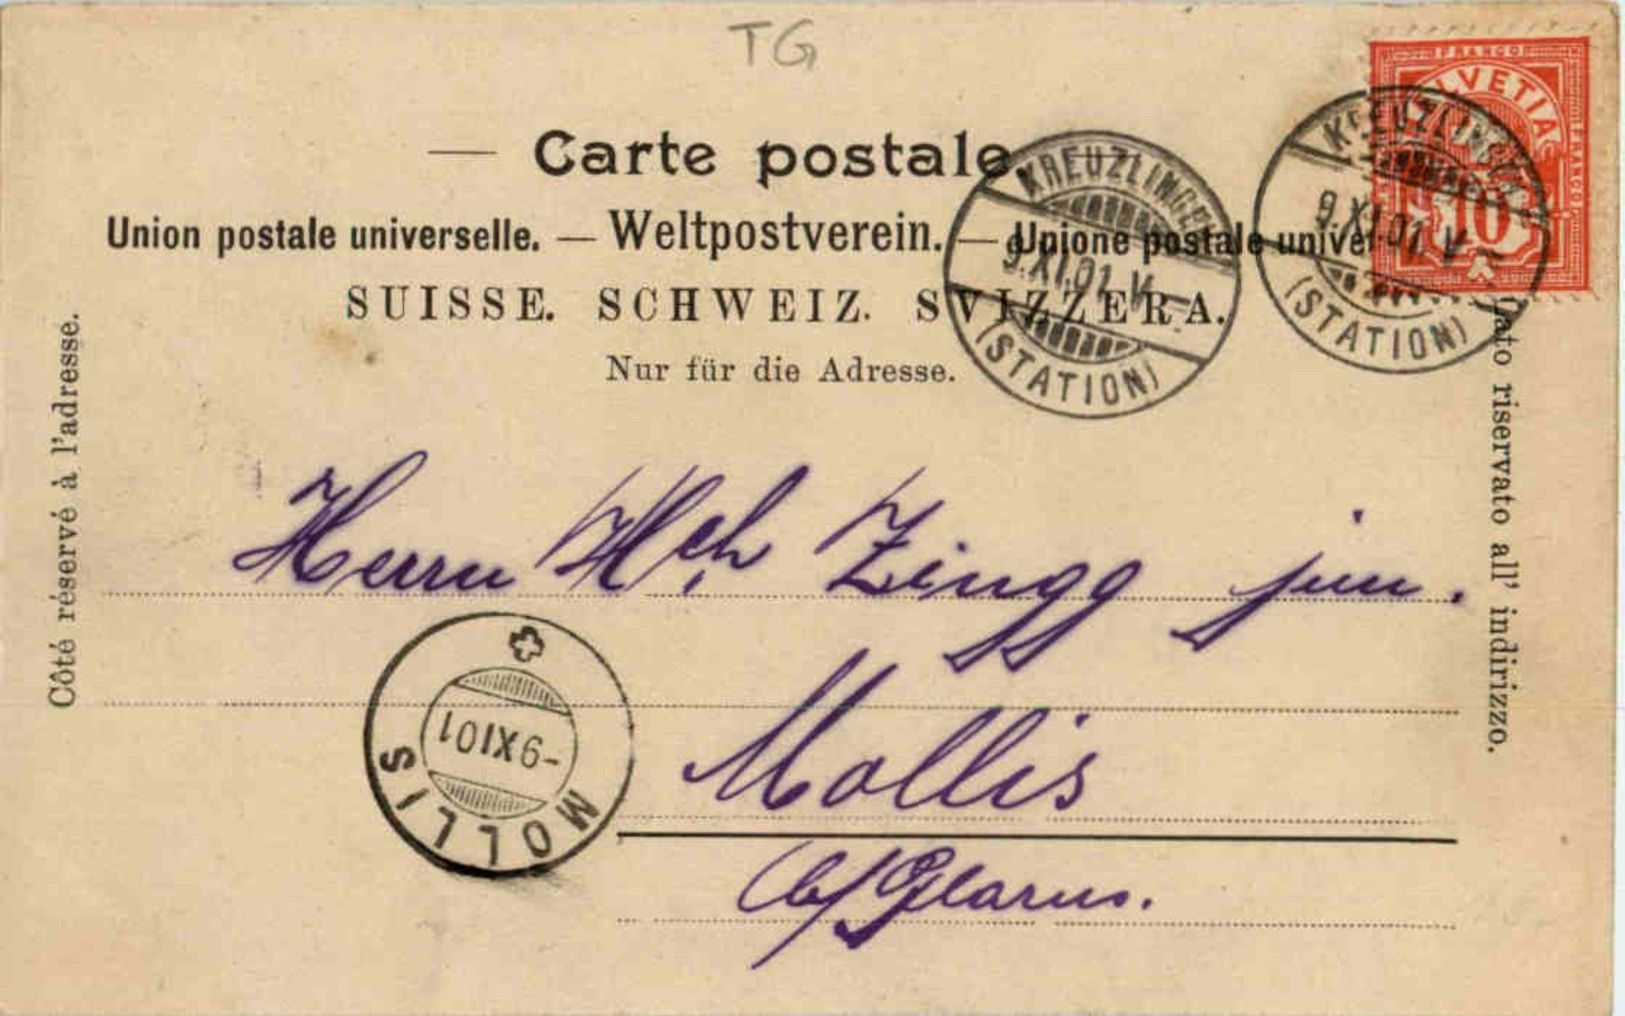 TG
FRANCO
HELVETIA
FRANCO
10
Carte postale
KREUZLINGEN
9.XI.01.V–
(STATION)
KREUZLINGEN
9.XI.01.V–
(STATION)
Union postale universelle. — Weltpostverein. — Unione postale univer
SUISSE. SCHWEIZ. SVIZZERA.
Nur für die Adresse.
Côté réservé à l'adresse.
Lato riservato all' indirizzo.
Herrn Hch Zingg jun.
Mollis
b/Glarus.
MOLLIS
-9 XI 01